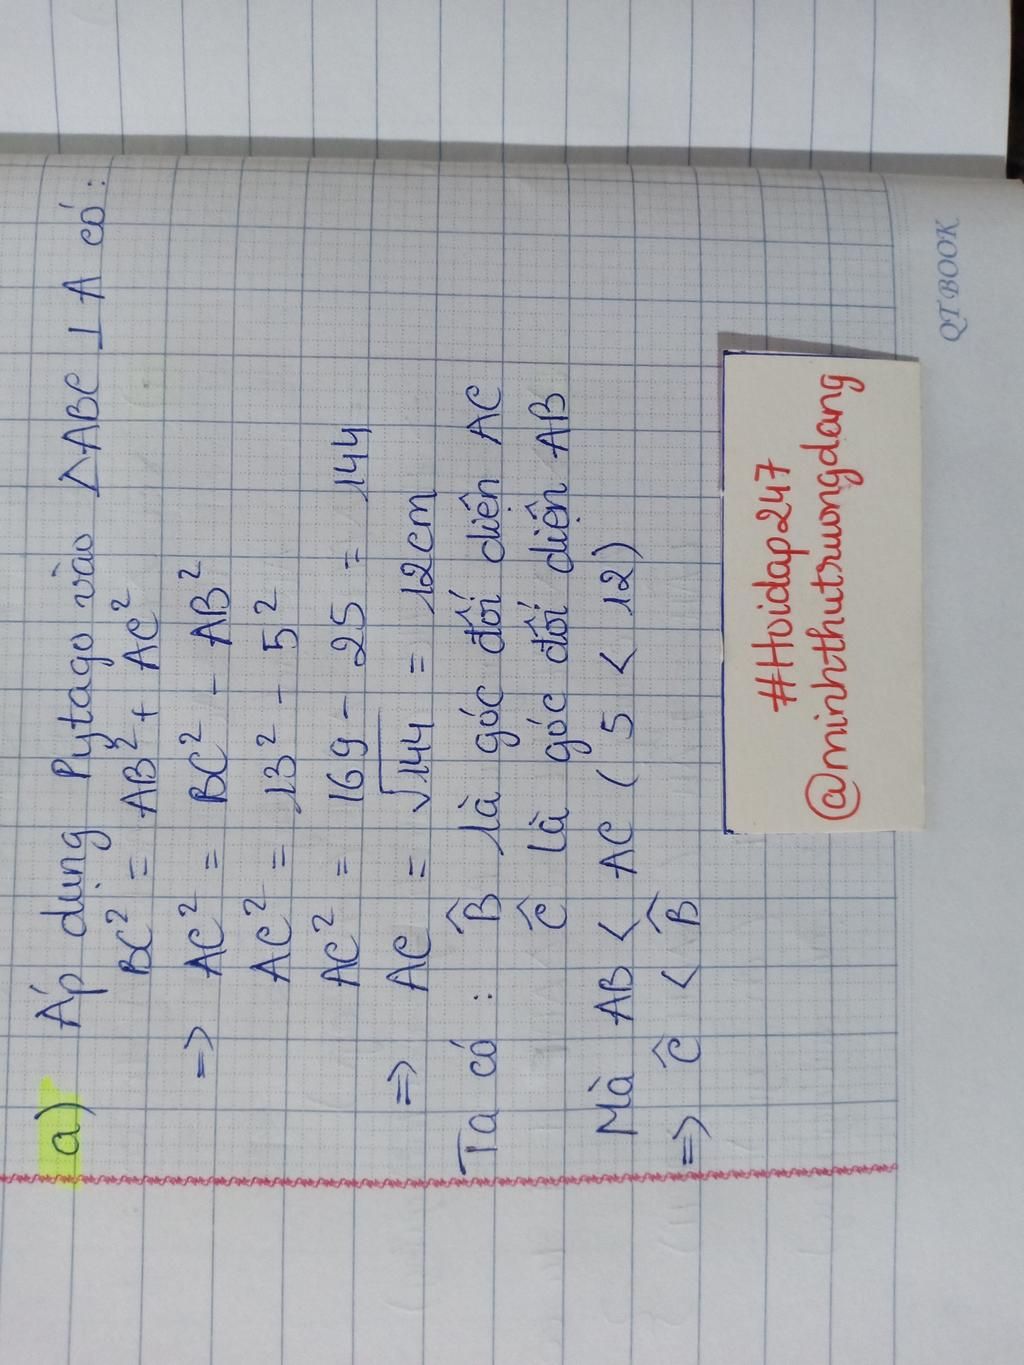 a) Áp dụng Pytago vào △ABC ⊥ A có:
BC² = AB² + AC²
=> AC² = BC² - AB²
AC² = 13² - 5²
AC² = 169 - 25 = 144
=> AC = √144 = 12cm
Ta có: B̂ là góc đối diện AC
Ĉ là góc đối diện AB
Mà AB < AC (5 < 12)
=> Ĉ < B̂
#Hoidap247
@minhthutruongdang
QT BOOK